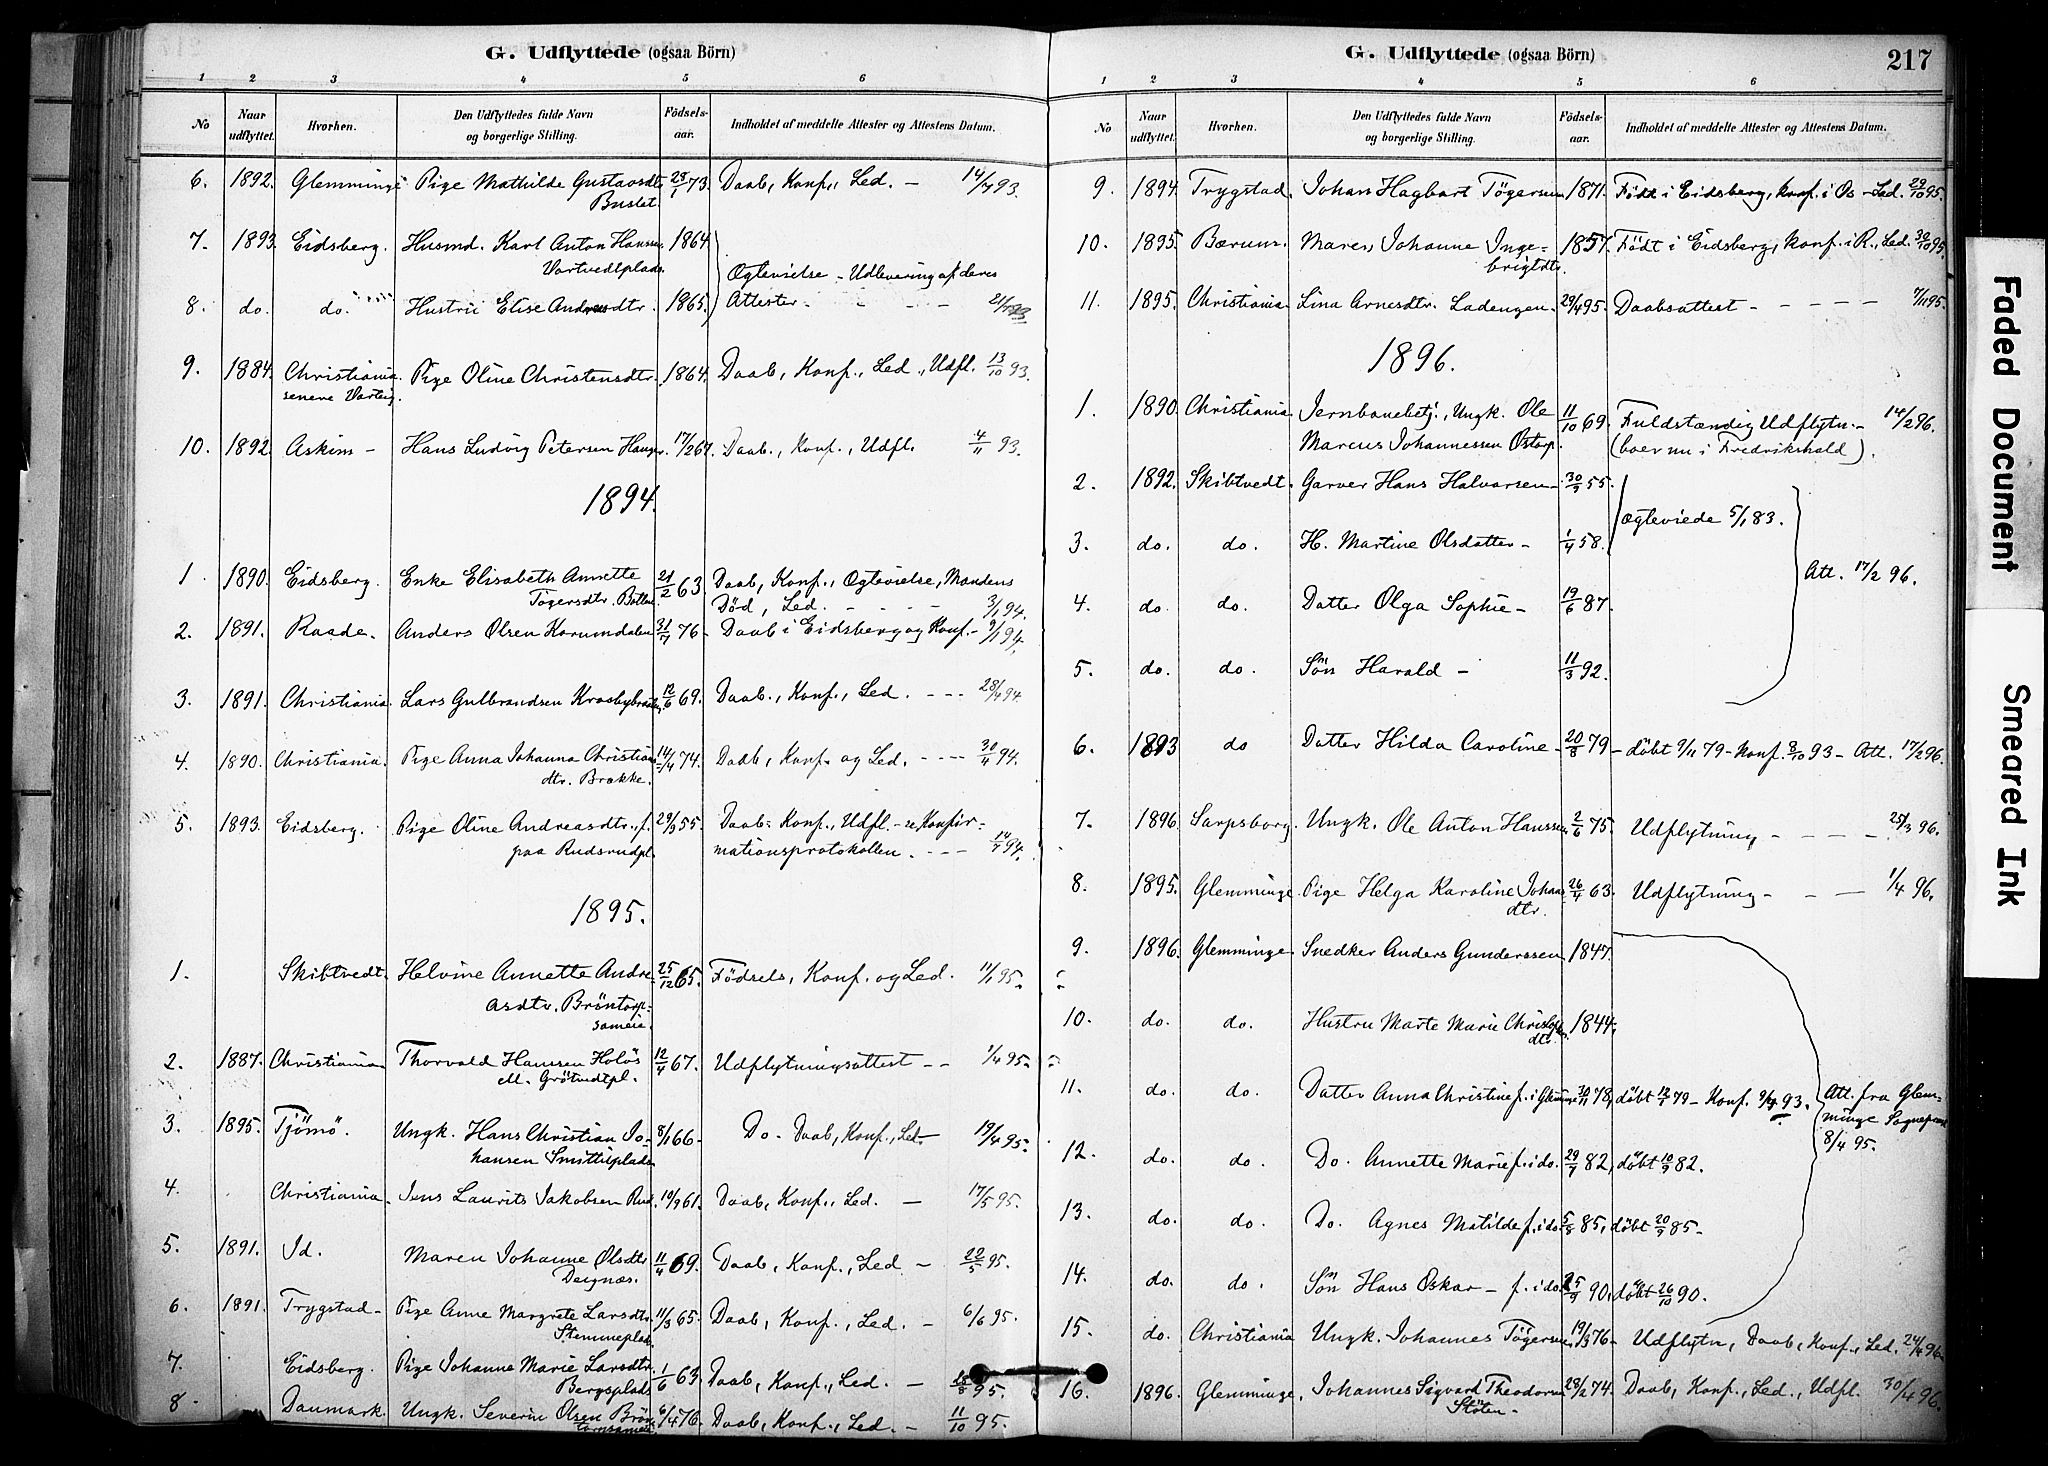 G. Udflyttede (ogsaa Börn)
1 2 3 4 5 6
No Naar udflyttet. Hvorhen. Den Udflyttedes fulde Navn og borgerlige Stilling. Födsels-aar. Indholdet af meddelte Attester og Attestens Datum.
6. 1892. Glemminge Pige Mathilde Gustavsdtr 73. Daab, Konf., Led. – 14/7 93.
7. 1893. Eidsberg. Husmd. Karl Anton Hansen 1864
Vartvedtplads.
Ogtevielse – Udlevering af deres
8. do. do. Hustru Elise Andreasdtr. 1865. Attester – – – –
9. 1884. Christiania. Pige Oline Christensdtr. 1864. Daab, Konf., Led., Udfl. 13/10 93.
senere Varteig.
10. 1892. Askim – Hans Ludvig Petersen 17/2 67. Daab., Konf., Udfl. 4/11 93.
1894.
1. 1890. Eidsberg. Enke Elisabeth Annette 21/2 63. Daab, Konf., Ogtevielse, Mandens
Tøgersdtr. Död, Led. – – – 3/1 94.
2. 1891. Raade. Anders Olsen Karumdalen 31/7 76 – Daab i Eidsberg og Konf. – 9/1 94.
3. 1891. Christiania. Lars Gulbrandsen 12/6 69. Daab., Konf., Led. – – – 28/4 94.
4. 1890. Christiania. Pige Anna Johanna Christians 14/4 74. Daab, Konf. og Led. – – – 94.
dtr. Brække.
5. 1893. Eidsberg. Pige Oline Andreasdtr. f. 29/3 55. Daab – Konf., Udfl. – se Konfir-
paa Rudsrudpl. mationsprotokollen. – – – 94.
1895.
1. Skibtvedt. Helvine Annette Andre- 25/12 65. Födsels, Konf. og Led. 11/1 95.
asdtr. Bröntorp-
sameie.
2. 1887. Christiania Thorvald Hansen Holös 12/4 67. Udflytningsattest – – 1/4 95.
ell. Grötvedtpl.
3. 1895. Tjömö. Ungk. Hans Christian Jo- 8/1 66 – Do. Daab, Konf., Led – 19/4 95.
hansen Smittilplads
4. Christiania Jens Laurits Jakobsen Rud. 10/3 61. Daab, Konf., Led. – 17/5 95.
5. 1891. Id. Maren Johanne Olsdtr 11/4 69. Daab, Konf., Led. – 22/5 95.
6. 1891. Trygstad – Pige Anne Margrete Larsdtr. 11/3 65. Daab, Konf., Led. – 6/6 95.
Stemmeplads
7. Eidsberg. Pige Johanne Marie Larsdtr. 1/6 63. Daab, Konf., Led. – 95.
Bergsplads
8. Danmark. Ungk. Severin Olsen 6/4 76. Daab, Konf., Led. – 11/10 95.
G. Udflyttede (ogsaa Börn) 217
1 2 3 4 5 6
No Naar udflyttet. Hvorhen. Den Udflyttedes fulde Navn og borgerlige Stilling. Födsels-aar. Indholdet af meddelte Attester og Attestens Datum.
9. 1894. Trygstad. Johan Hagbart Tögersen 1871. Född i Eidsberg, konf. i Os – Led. 29/10 95.
10. 1895. Bærum. Maren Johanne Inge- 1857. Födt i Eidsberg, konf. i R., Led. 30/10 95.
brigtdtr.
11. 1895. Christiania. Lina Arnesdtr. Ladengen. 29/4 95. Daabsattest – – – – 7/11 95.
1896.
1. 1890. Christiania. Jernbanebetj., Ungk. Ole 11/10 69. Fuldstændig Udflytn. – 14/2 96.
Marcus Johannessen Östorp. (boer nu i Fredrikshald).
2. 1892. Skibtvedt. Garver Hans Halvorsen – 30/9 55.
Ægteviede 5/1 83.
3. do. do. H. Martine Olsdatter – 1/4 58.
Att. 17/2 96.
4. do. do. Datter Olga Sophie – 19/6 87.
5. do. do. Sön Harald – 11/3 92.
6. 1893 do Datter Hilda Caroline – 20/8 79 – döbt 9/11 79 – Konf. 8/10 93 – Att. 17/2 96.
7. 1896. Sarpsborg. Ungk. Ole Anton Hanssen 2/6 75. Udflytning – – – 25/3 96.
8. 1895. Glemminge. Pige Helga Karoline Johans 26/4 63. Udflytning – – – 1/4 96.
dtr.
9. 1896. Glemminge. Snedker Anders Gunderssen 1847.
10. do. do. Hustru Marte Marie Christophers 1844.
dtr.
11. do. do. Datter Anna Christine f. i Glemminge 30/11 78, döbt 12/1 79 – Konf. 93. Att. fra Glem-
minge Sognepræst
12. do. do. Do. Annette Marie f. i do. 29/7 82, döbt 10/9 82. 8/4 95.
13. do. do. Do. Agnes Matilde f. i do. 5/8 85, döbt 20/9 85 –
14. do. do. Sön Hans Oskar – f. i do. 90, döbt 26/10 90.
15. do. Christiania Ungk. Johannes Tögersen 19/3 76 – Udflytn, Daab, Konf., Led. 24/4 96.
16. 1896. Glemminge. Johannes Sigvard Theodorsen 28/2 74. Daab, Konf., Led., Udfl. 30/4 96.
Stöten –
Faded Document
Smeared Ink